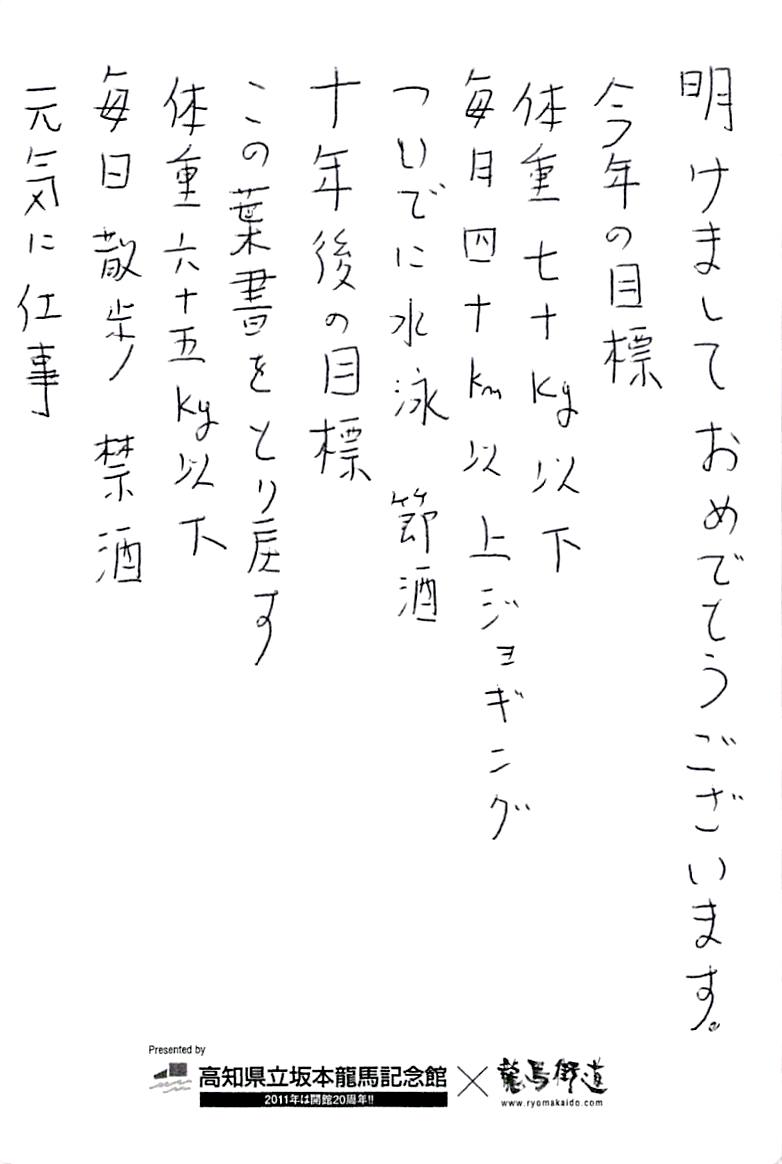 明けましておめでとうございます。
今年の目標
体重七十kg以下
毎月四十km以上ジョギング
ついでに水泳 節酒
十年後の目標
この葉書をとり戻す
体重六十五kg以下
毎日散歩 禁酒
元気に仕事
Presented by
高知県立坂本龍馬記念館×龍馬街道
2011年は開館20周年!!
www.ryomakaido.com